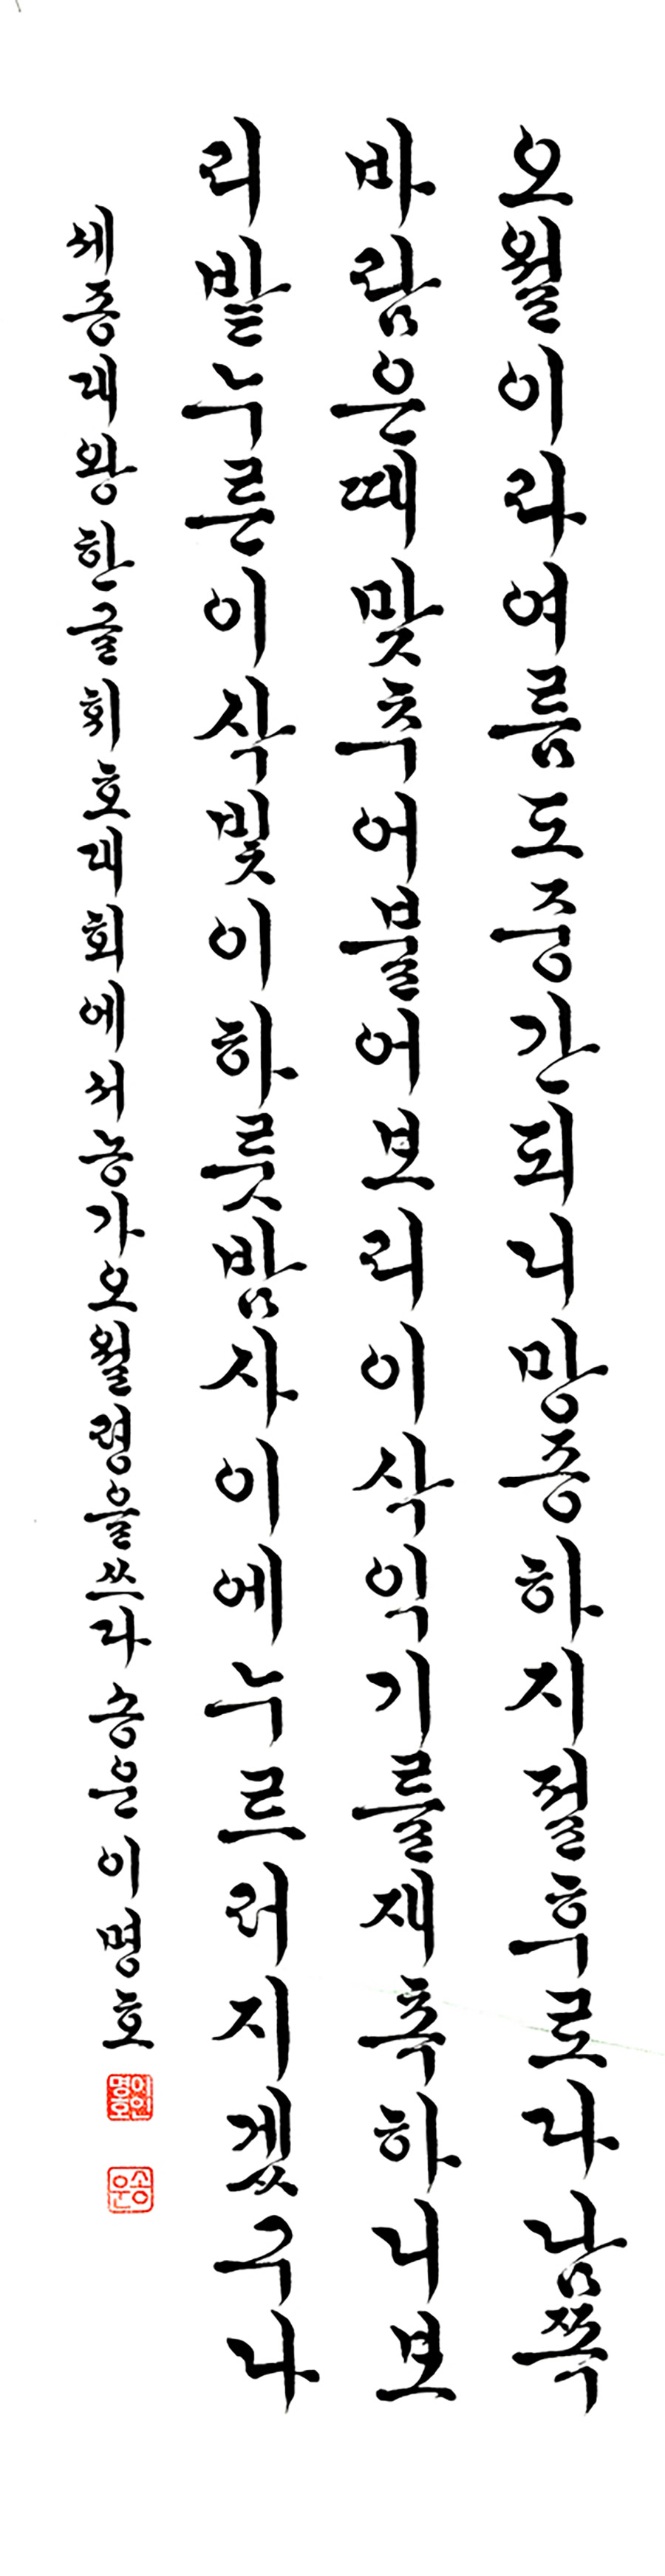 오월이라여름도중간되니망종하지절후로다남쪽
바람은때맞추어불어보리이삭익기를재촉하니보
리밭누른이삭빛이하룻밤사이에누르러지겠구나
세종대왕한글휘호대회에서농가오월령을쓰다 송운 이명호
이명호인
송운